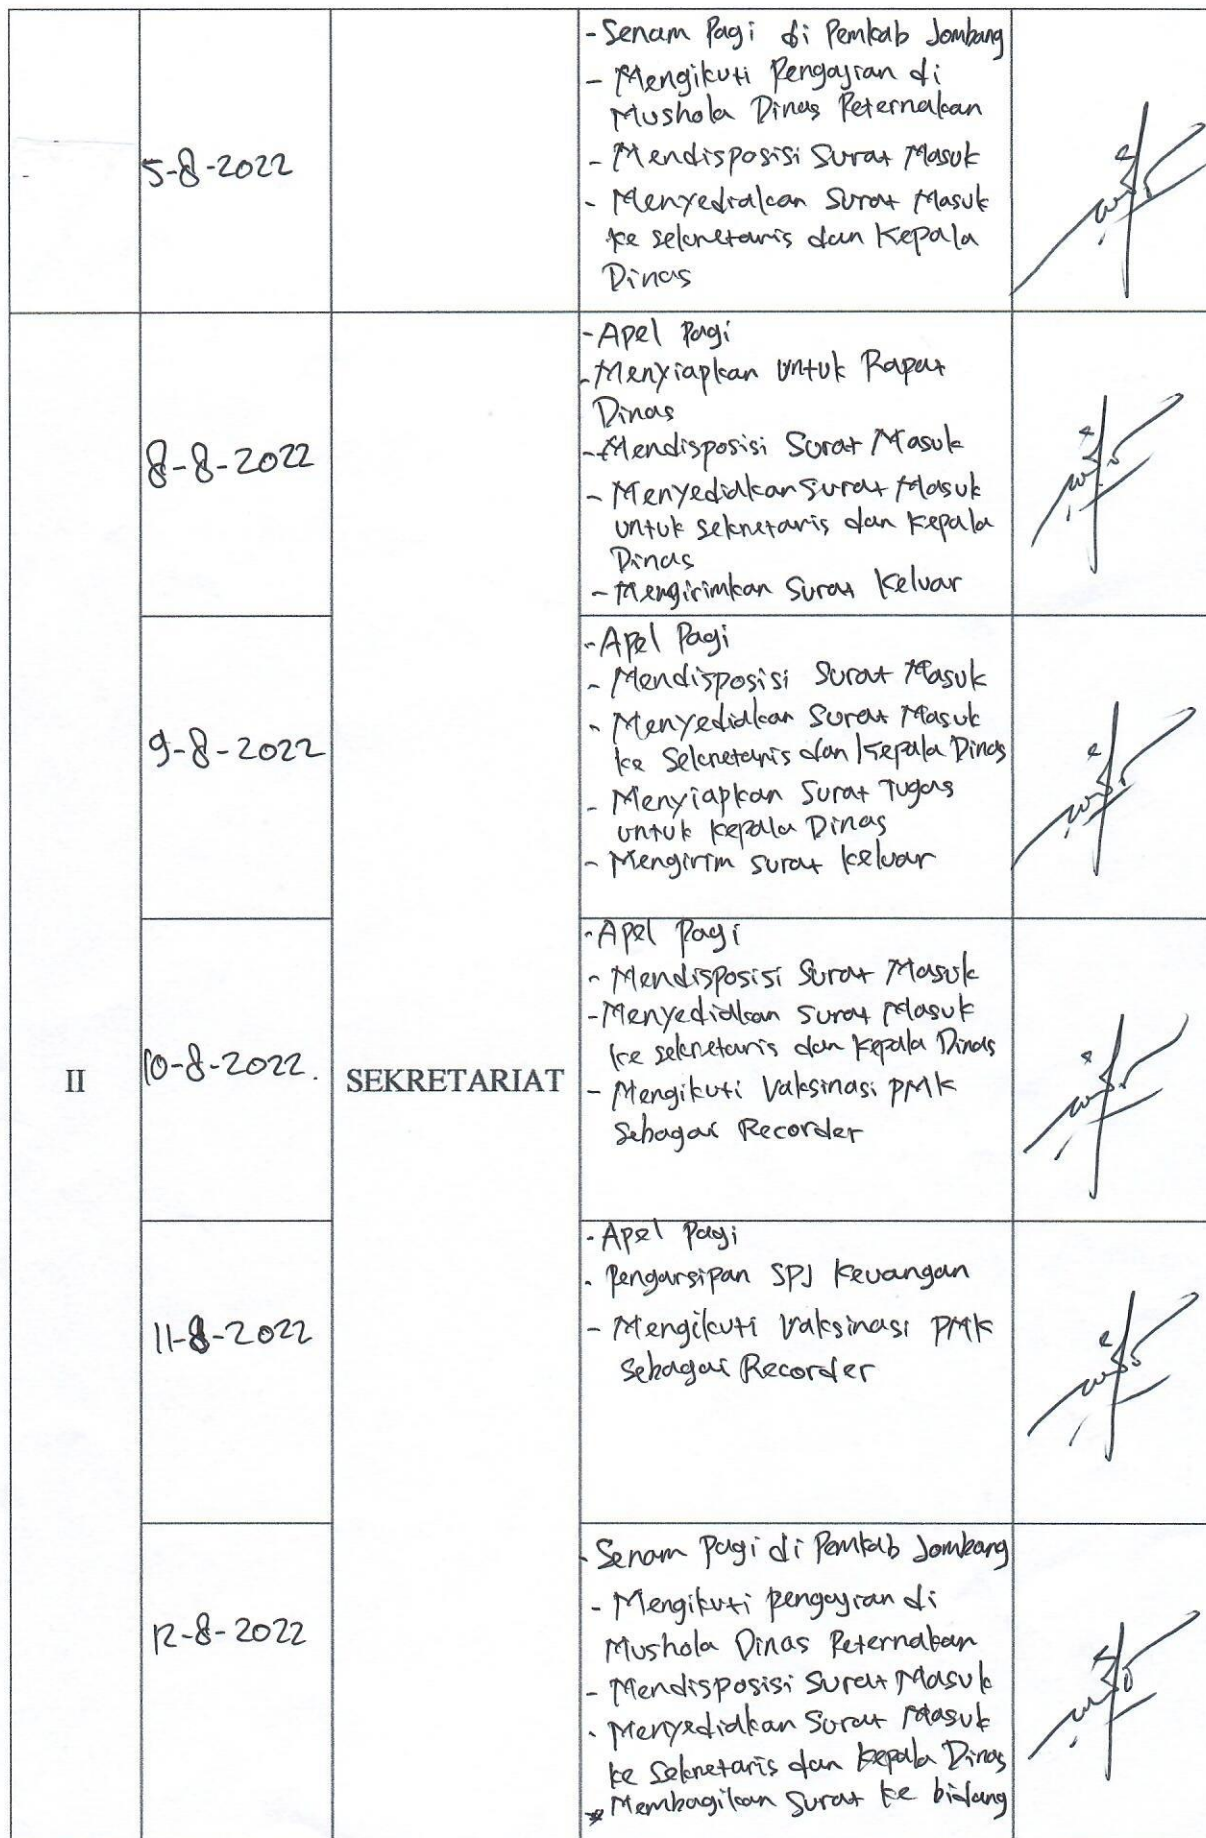 5-8-2022
- Senam Pagi di Pemkab Jombang
- Mengikuti Pengajian di
Mushola Dinas Peternakan
- Mendisposisi Surat Masuk
- Menyediakan Surat Masuk
ke sekretaris dan Kepala
Dinas
II
SEKRETARIAT
8-8-2022
- Apel Pagi
- Menyiapkan untuk Rapat
Dinas
- Mendisposisi Surat Masuk
- Menyediakan Surat Masuk
untuk sekretaris dan Kepala
Dinas
- Mengirimkan Surat Keluar
9-8-2022
- Apel Pagi
- Mendisposisi Surat Masuk
- Menyediakan Surat Masuk
ke Sekretaris dan Kepala Dinas
- Menyiapkan Surat Tugas
untuk Kepala Dinas
- Mengirim surat keluar
10-8-2022.
- Apel Pagi
- Mendisposisi Surat Masuk
- Menyediakan Surat Masuk
ke sekretaris dan Kepala Dinas
- Mengikuti Vaksinasi PMK
Sebagai Recorder
11-8-2022
- Apel Pagi
- Pengarsipan SPJ Keuangan
- Mengikuti Vaksinasi PMK
Sebagai Recorder
12-8-2022
- Senam Pagi di Pemkab Jombang
- Mengikuti pengajian di
Mushola Dinas Peternakan
- Mendisposisi Surat Masuk
- Menyediakan Surat Masuk
ke Sekretaris dan Kepala Dinas
* Membagikan Surat ke bidang